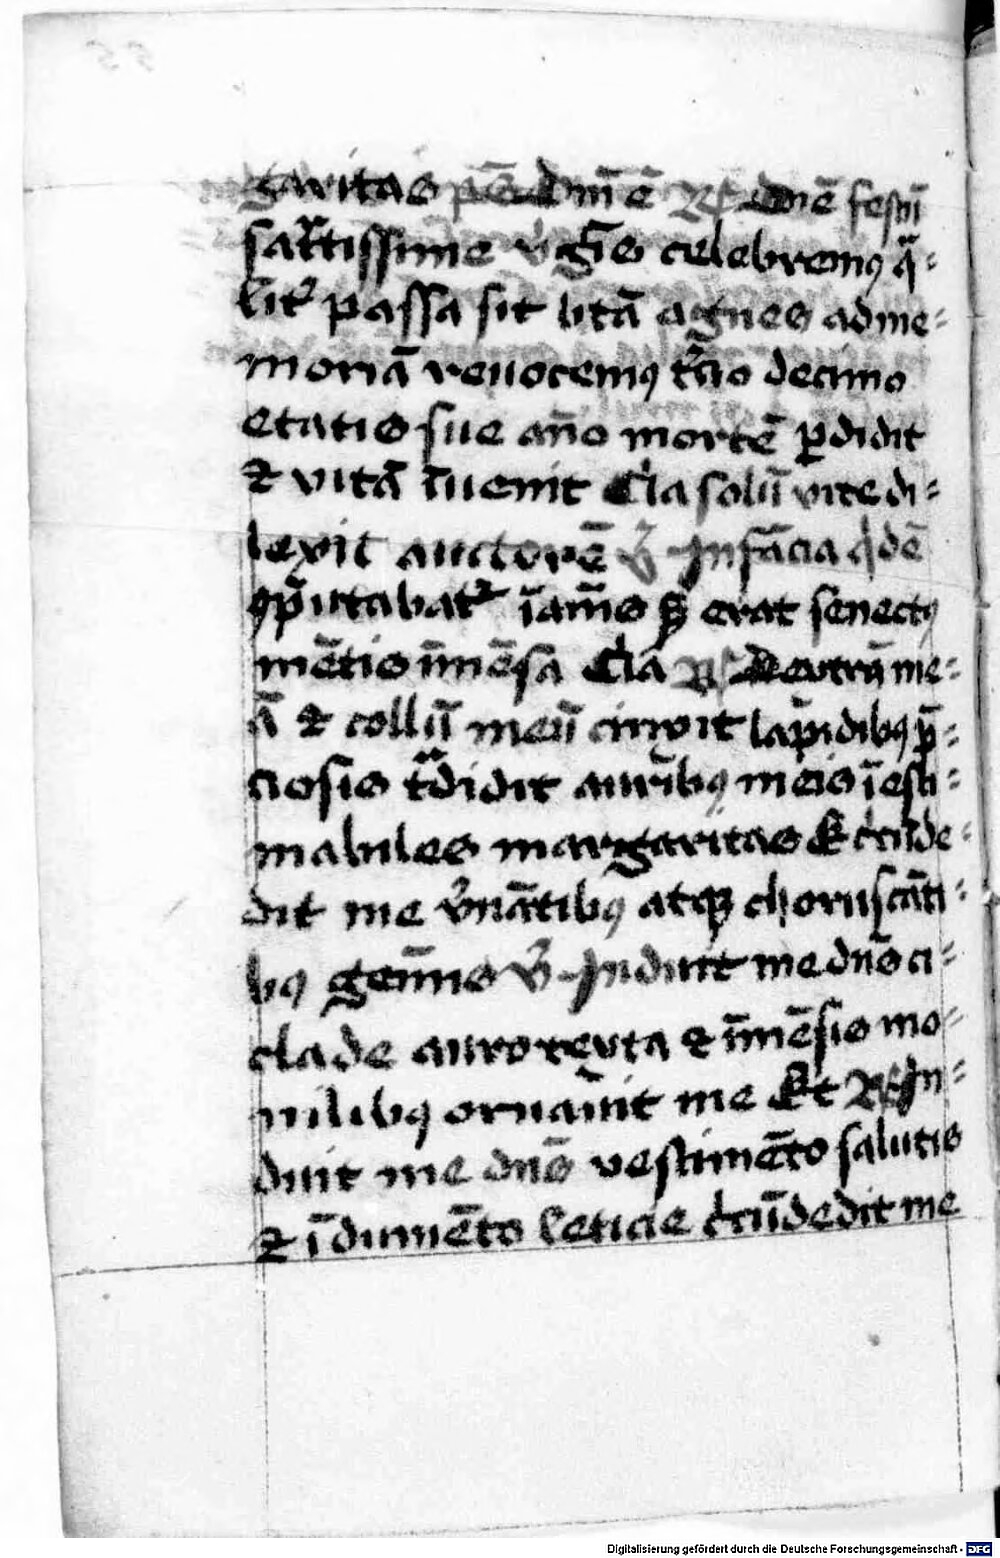 garitas ps̄ Dm̄ ē R Diē festū
sacͣtissime v̓gīs celebremꝯ qͣ-
lit̓ passa sit btā agnes ad me-
moriā reuocemꝯ t̓cio decimo
etatis sue āno mortē ꝑdidit
et vitā īuenit Q̓ia solū vite di-
lexit auctorē v̓ Infācia q̓dē
ꝯputabat᷑ ī ānis sꝫ erat senectꝯ
mētis īmēsa Q̓ia R Dextrā me-
ā et collū meū cinxit lapidibꝯ p̄-
ciosis tͣdidit auribꝯ meis īesti-
mabiles margaritas Et c̓cūde-
dit me v̓nātibꝯ atqꝫ choruscāti-
bꝯ gēmis v̓ Induit me dn̄s ci-
clade auro texta et īmēsis mo-
nilibꝯ ornauit me Et R In-
duit me dn̄s vestimēto salutis
et īdumēto leticie c̓cūdedit me
Digitalisierung gefördert durch die Deutsche Forschungsgemeinschaft - DFG